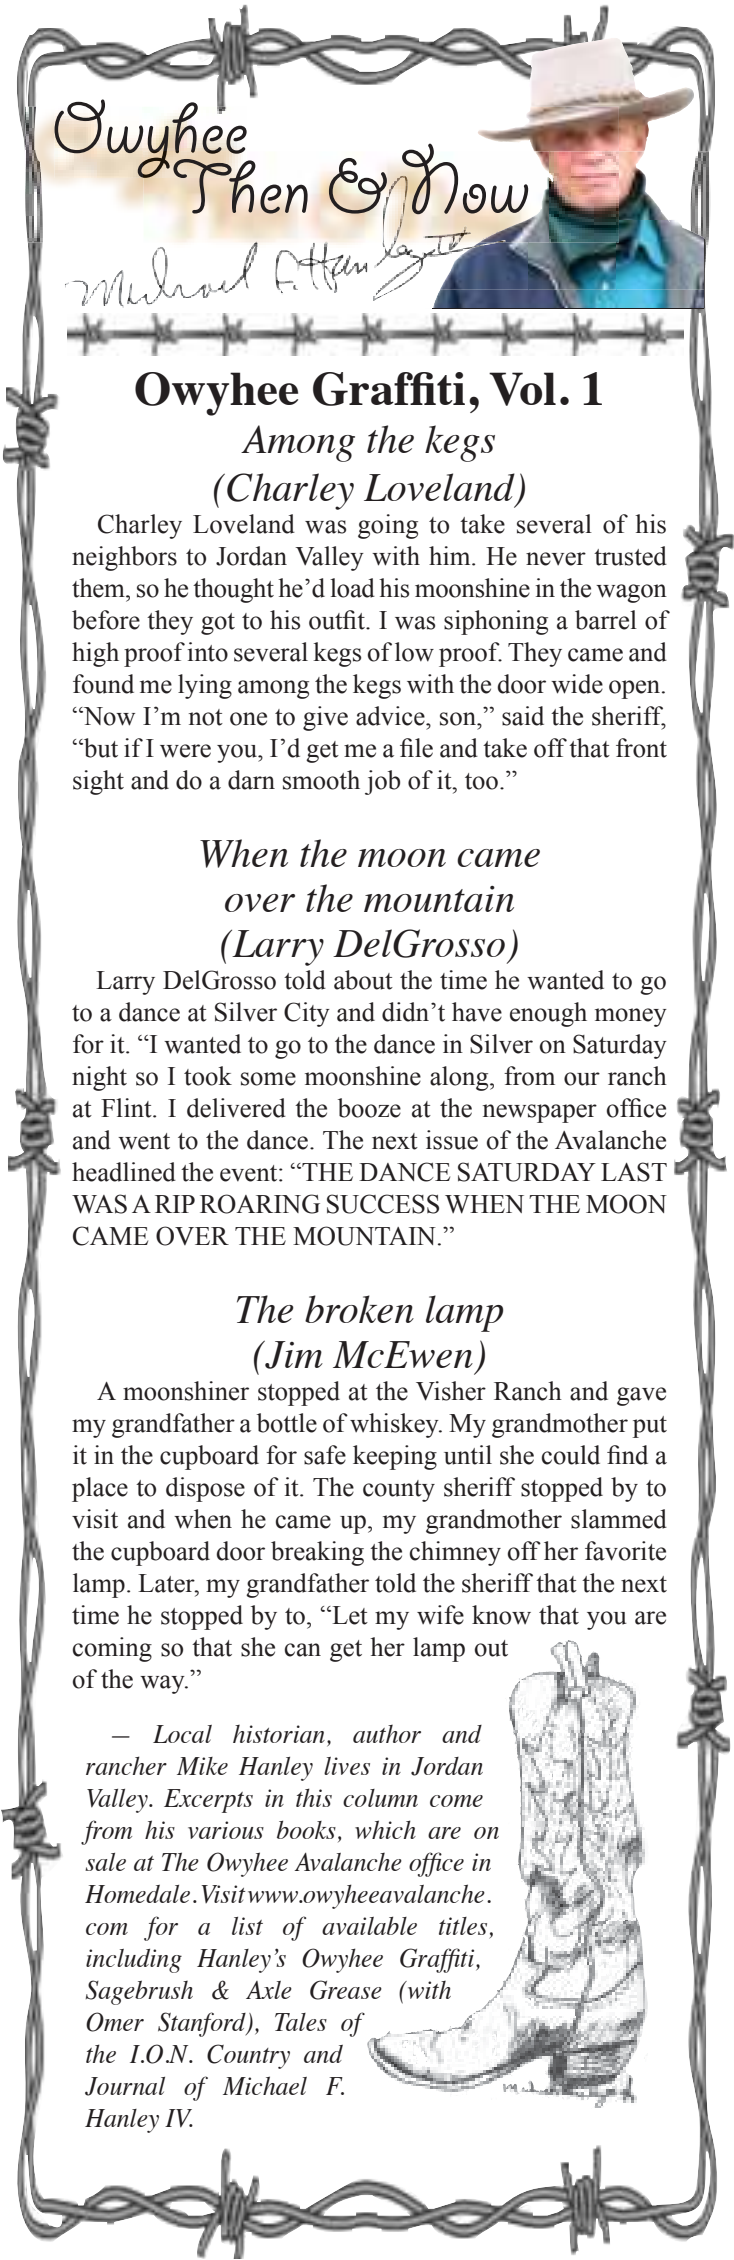 Owyhee
Then & Now
Michael F. Hanley IV
Owyhee Graffiti, Vol. 1
Among the kegs
(Charley Loveland)
Charley Loveland was going to take several of his
neighbors to Jordan Valley with him. He never trusted
them, so he thought he’d load his moonshine in the wagon
before they got to his outfit. I was siphoning a barrel of
high proof into several kegs of low proof. They came and
found me lying among the kegs with the door wide open.
“Now I’m not one to give advice, son,” said the sheriff,
“but if I were you, I’d get me a file and take off that front
sight and do a darn smooth job of it, too.”
When the moon came
over the mountain
(Larry DelGrosso)
Larry DelGrosso told about the time he wanted to go
to a dance at Silver City and didn’t have enough money
for it. “I wanted to go to the dance in Silver on Saturday
night so I took some moonshine along, from our ranch
at Flint. I delivered the booze at the newspaper office
and went to the dance. The next issue of the Avalanche
headlined the event: “THE DANCE SATURDAY LAST
WAS A RIP ROARING SUCCESS WHEN THE MOON
CAME OVER THE MOUNTAIN.”
The broken lamp
(Jim McEwen)
A moonshiner stopped at the Visher Ranch and gave
my grandfather a bottle of whiskey. My grandmother put
it in the cupboard for safe keeping until she could find a
place to dispose of it. The county sheriff stopped by to
visit and when he came up, my grandmother slammed
the cupboard door breaking the chimney off her favorite
lamp. Later, my grandfather told the sheriff that the next
time he stopped by to, “Let my wife know that you are
coming so that she can get her lamp out
of the way.”
— Local historian, author and
rancher Mike Hanley lives in Jordan
Valley. Excerpts in this column come
from his various books, which are on
sale at The Owyhee Avalanche office in
Homedale. Visit www.owyheeavalanche.
com for a list of available titles,
including Hanley’s Owyhee Graffiti,
Sagebrush & Axle Grease (with
Omer Stanford), Tales of
the I.O.N. Country and
Journal of Michael F.
Hanley IV.